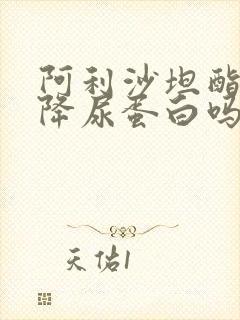 阿利沙坦酯
降尿蛋白吗
天佑1